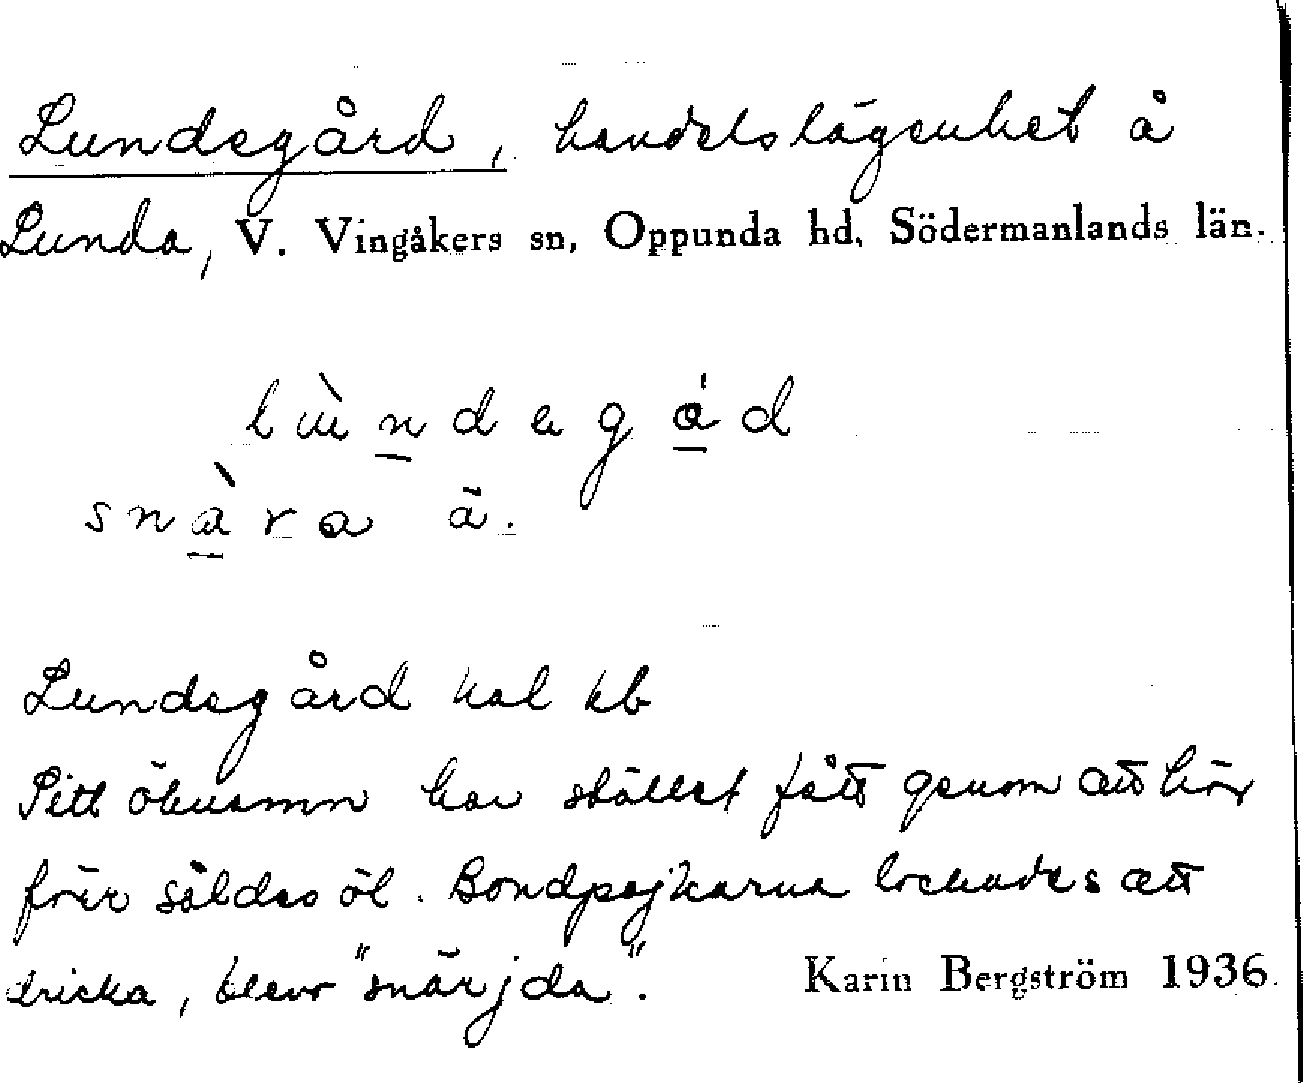 Lundegård, handelslägenhet å
Lunda, V. Vingåkers sn, Oppunda hd, Södermanlands län.
lùndegǻd
snàra ä.
Lundegård kal kb
Sitt öknamn har stället fått genom att här
förr såldes öl. Bondpojkarna lockades att
dricka, blevo "snärjda".
Karin Bergström 1936.